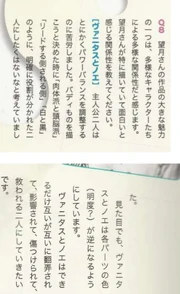 Q8
望月さんの作品の大きな魅力
の一つは、多様なキャラクターたち
による多様な関係性だと感じます。
望月さんが特に描いていて面白いと
感じる関係性を教えてください。
【ヴァニタスとノエ】主人公二人は
とにかくパワーバランスを調整する
のに苦労しました。バディものを描
こうと決めたときに「肉体派と頭脳派」
「リードする側される側」「白と黒」
のように、明確に役割が分かれた二
人にしたくはないなと考えていまし
た。
見た目でも、ヴァニタ
スとノエは各パーツの色
（明度？）が逆になるよう
にしています。
ヴァニタスとノエはでき
るだけ互いが互いに翻弄され
て、影響されて、傷つけられて、
救われる二人にしていきたい
です。